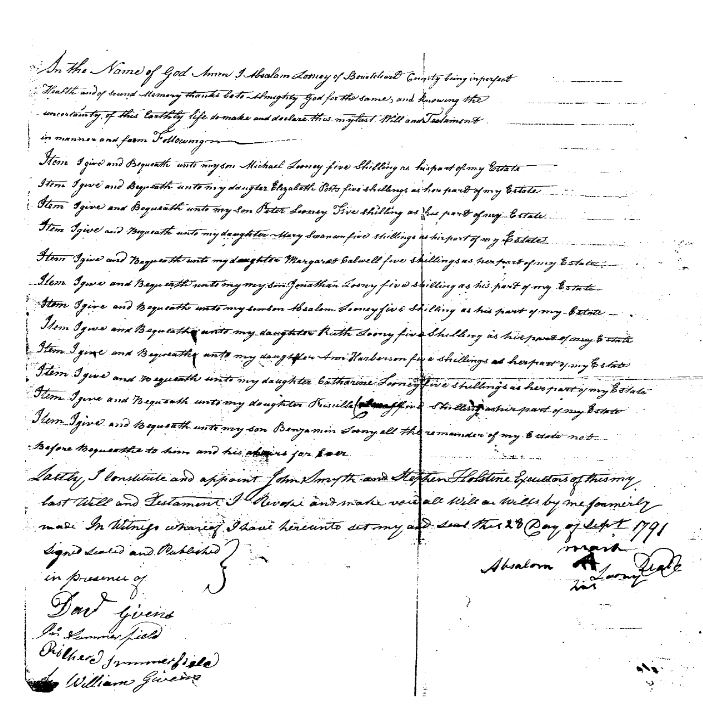 In the Name of God Amen I Absalom Looney of Bowtetourt County being in perfect
Health and of sound Memory thanks be to Almighty God for the same, and knowing the
uncertainty of this Earthly life to make and declare this my last Will and Testament
in manner and form Following
Item I give and Bequeath unto my son Michael Looney five Shilling as his part of my Estate
Item I give and Bequeath unto my daughter Elizabeth five shillings as her part of my Estate
Item I give and Bequeath unto my son Peter Looney Five shilling as his part of my Estate
Item I give and Bequeath unto my daughter Mary five shillings as his part of my Estate
Item I give and Bequeath unto my daughter Margaret Calwell five shillings as her part of my Estate
Item I give and Bequeath unto my my son Jonathan Loony five shillings as his part of my Estate
Item I give and Bequeath unto my son Absalom Looney five shilling as his part of my Estate
Item I give and Bequeath unto my daughter Ruth Loony five Shilling as his part of my Estate
Item I give and Bequeath unto my daughter Ann Harberson five shillings as her part of my Estate
Item I give and Bequeath unto my daughter Catharine Looney five shillings as her part of my Estate
Item I give and Bequeath unto my daughter Priscilla five Shilling as her part of my Estate
Item I give and Bequeath unto my son Benjamin Loony all the remander of my Estate not
Before Bequeathe to him and his for Ever
Lastly, I constitute and appoint John Smyth and Stephen Holstine Executors of this my
last Will and Testament I Revoke and make void all Will or Wills by me formerly
made In Witness whareof I have hereunto set my and seal this 28 Day of Sept 1791
Signed sealed and Published
in presence of
mark
Absalom A Loony Seale
his
Davd Givens
Jas Summerfield
Richerd Summerfield
William Givens